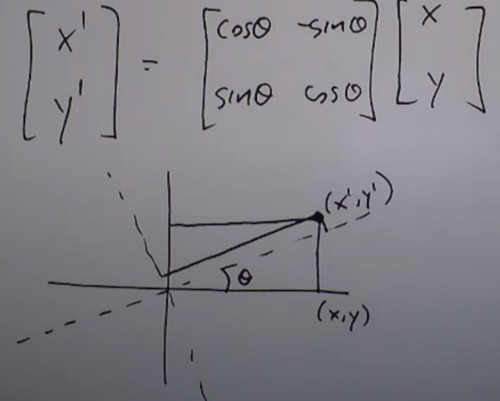 [x'] = [cosθ -sinθ] [x]
[y'] [sinθ cosθ] [y]
(x', y')
θ
(x, y)